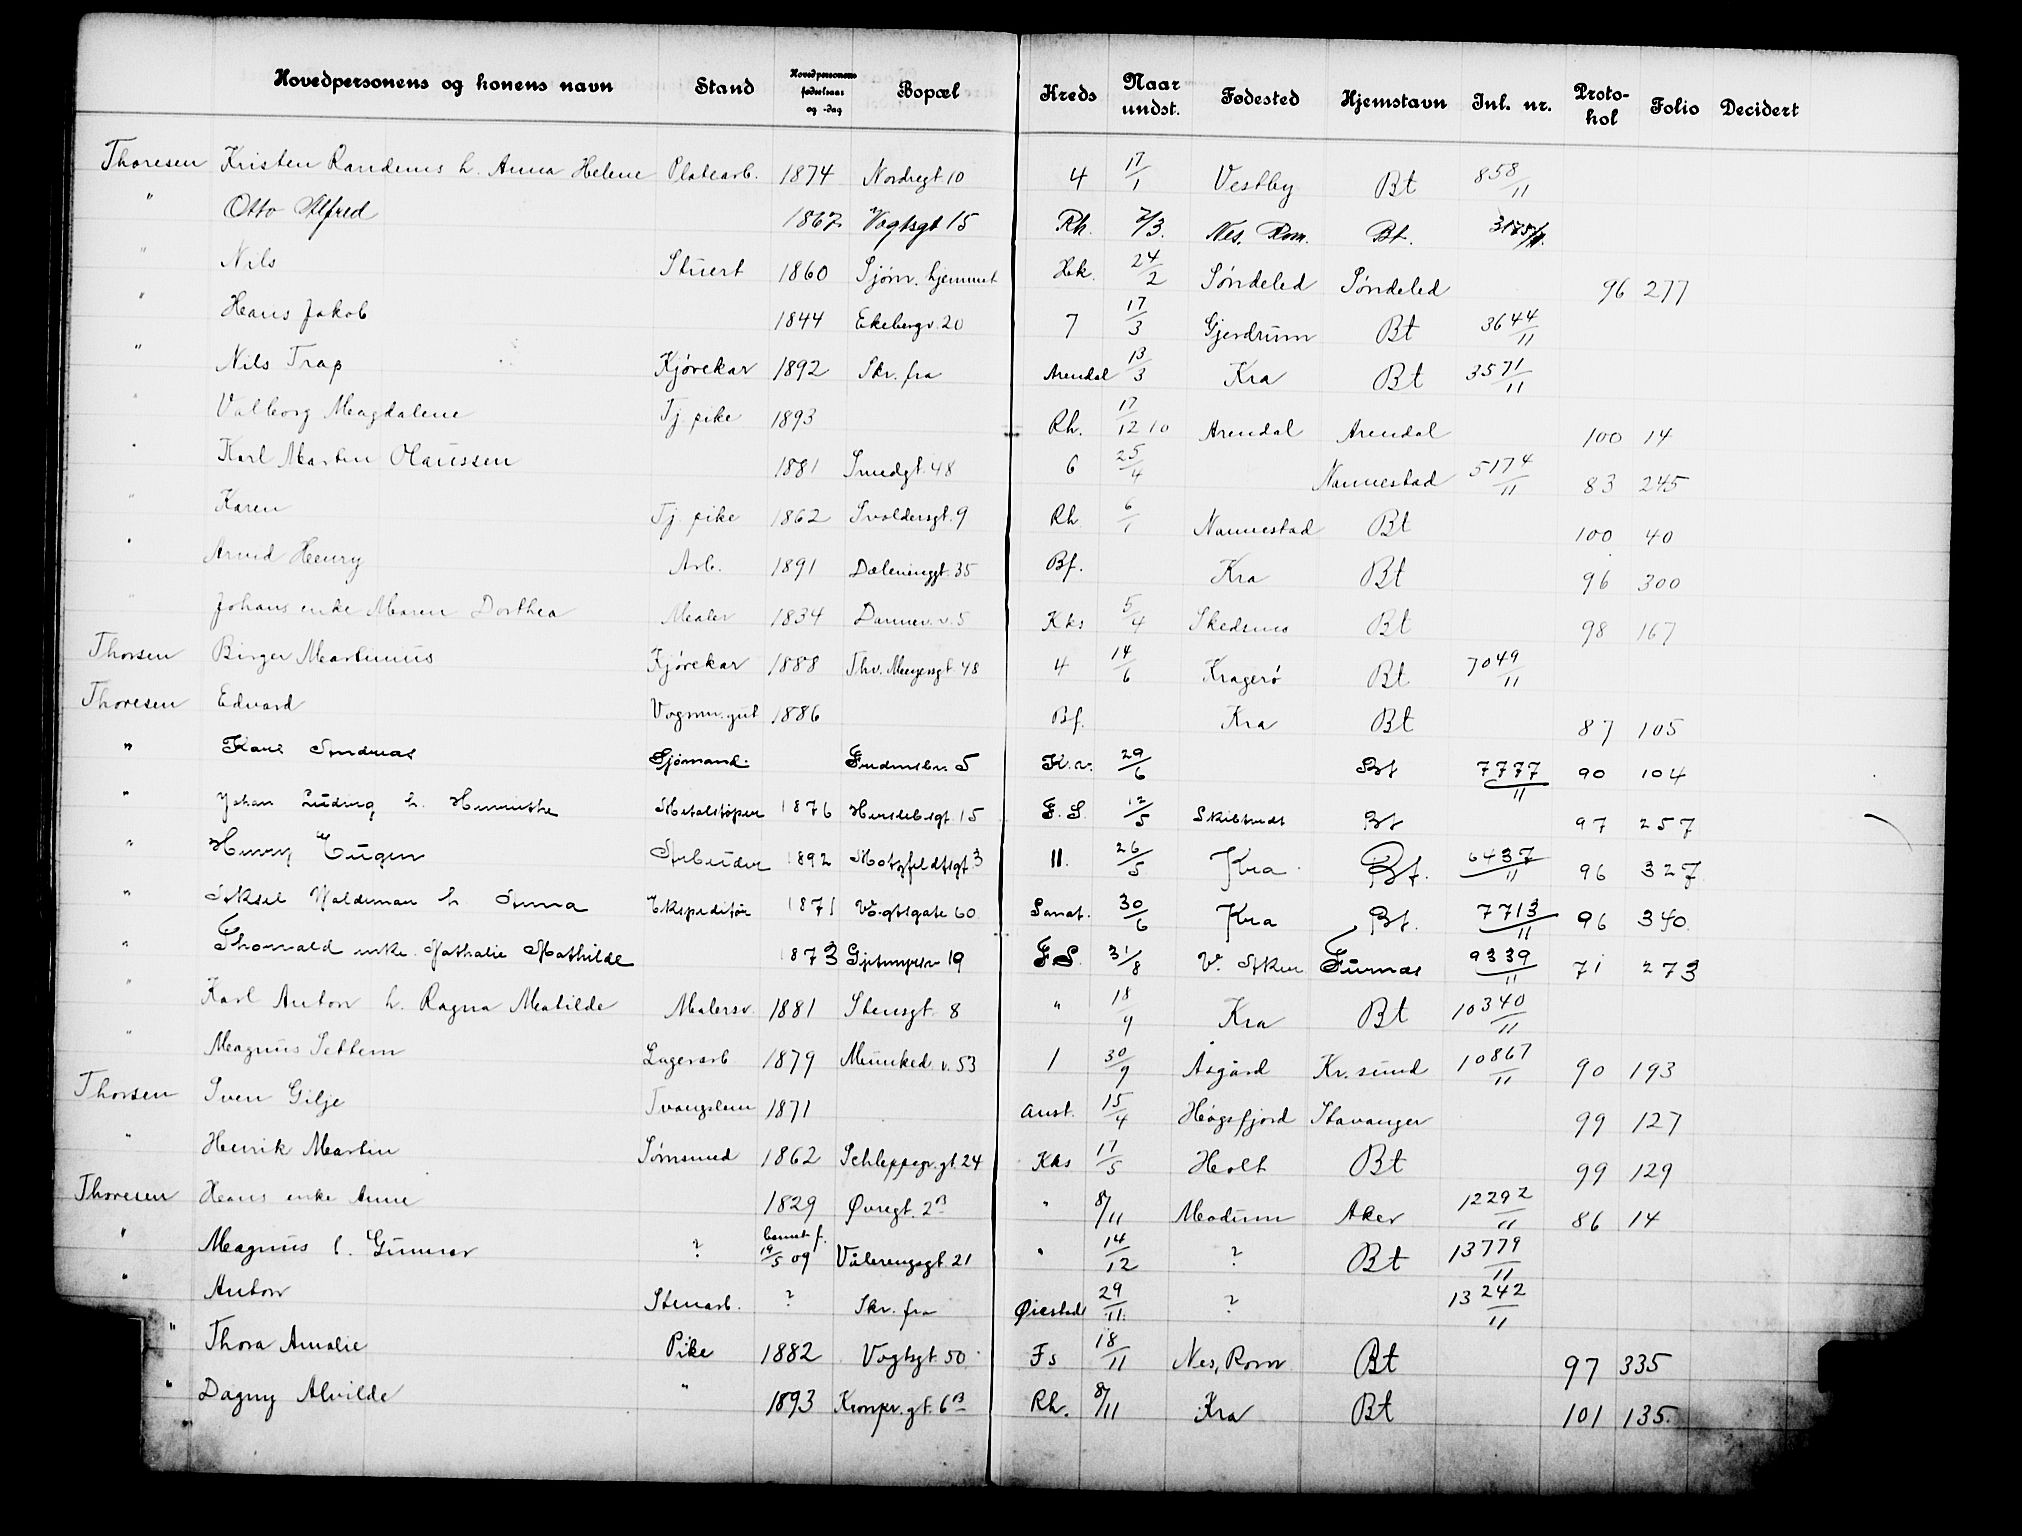 Hovedpersonens og konens navn Stand Hovedpersonens fødselsaar og -dag Bopæl Kreds Naar undst. Fødested Hjemstavn Inl. nr. Proto-kol Folio Decidert
Thoresen Kristen Randenus h. Anna Helene Platearb. 1874 Nordregt 10 4 17/1 Vestby Bt 858/11
" Otto Alfred 1867 Vogtsgt 15 Rh. 7/3. Nes, Rom. Bt.
" Nils Stuert 1860 Sjøm. hjemmet Hk. 24/2 Søndeled Søndeled 96 277
" Hans Jakob 1844 Ekebergv. 20 7 17/3 Gjerdrum Bt 3644/11
" Nils Trap Kjørekar 1892 Skr. fra Arendal 13/3 Kra Bt 3571/11
" Valborg Magdalene Tj pike 1893 Rh. 17/12 10 Arendal Arendal 100 14
" Karl Martin Olaussen 1881 Smedgt. 48 6 25/4 Nannestad 5174/11 83 245
" Karen Tj. pike 1862 Svoldersgt. 9 Rh 6/1 Nannestad Bt 100 40
" Arvid Henry Arb. 1891 Dælenenggt. 35 Bf. Kra Bt 96 300
" Johans enke Maren Dorthea Maler 1834 Dannev. v. 5 Kks 5/4 Skedsmo Bt 98 167
Thorsen Birger Martinius Kjørekar 1888 Thv. Meyersgt. 48 4 14/6 Kragerø Bt 7049/11
Thoresen Edvard Vognm. gut 1886 Bf. Kra Bt 87 105
" Karl Andreas Sjømand. 5 K.v. 29/6 Bt 7777/11 90 104
" Johan Ludvig h. Metalstøper 1876 15 F.S. 12/5 Bt 97 257
" Henry Eugen Arbeider 1892 Motzfeldtsgt 3 11. 26/5 Kra Bt. 6437/11 96 327.
" Aksel Valdemar h Anna Ekspeditør 1871 Vogtsgate 60 Sanat. 30/6 Kra Bt. 7713/11 96 340.
" Thorvald enke Nathalie Mathilde 1873 19 F.S. 31/8 V. Aker Furnes 9339/11 71 273
" Karl Anton h. Ragna Matilde Malersv. 1881 Stensgt. 8 " 18/9 Kra Bt 10340/11
" Magnus Settem Lagerarb 1879 Munked. v. 53 1 30/9 Åsgård Kr. sund 10867/11 90 193
Thorsen Sven Gilje Tvangslem 1871 Anst. 15/4 Høgsfjord Stavanger 99 127
" Henrik Martin Sømsmed 1862 Schleppegr. gt 24 Kks 17/5 Holt Bt 99 129
Thoresen Hans enke Anne 1829 Øvregt. 2B " 8/11 Modum Aker 12292/11 86 14
" Magnus l. Gunnar ? barnet f. 19/5 09 Vålerengsgt. 21 " 14/12 ? Bt 13779/11
" Anton Stenarb. ? Skr. fra Øiestad 29/11. ? 13242/11
" Thora Amalie Pike 1882 Vogtsgt. 50 Fs 18/11 Nes, Rom Bt 97 335
" Dagny Alvilde " 1893 Kronpr. gt. 6B Rh. 8/11 Kra Bt 101 135.